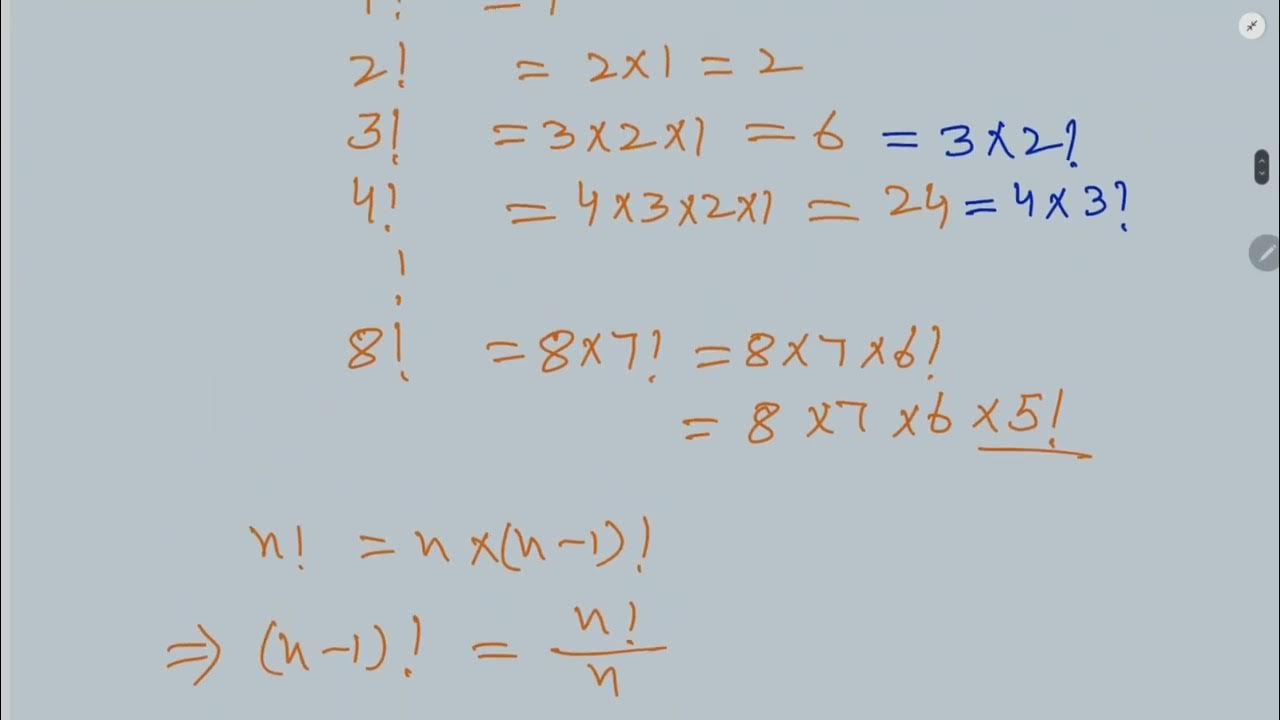 1! = 1
2! = 2×1 = 2
3! = 3×2×1 = 6 = 3×2!
4! = 4×3×2×1 = 24 = 4×3!
8! = 8×7! = 8×7×6!
= 8×7×6×5!
n! = n×(n-1)!
⇒ (n-1)! = n!/n